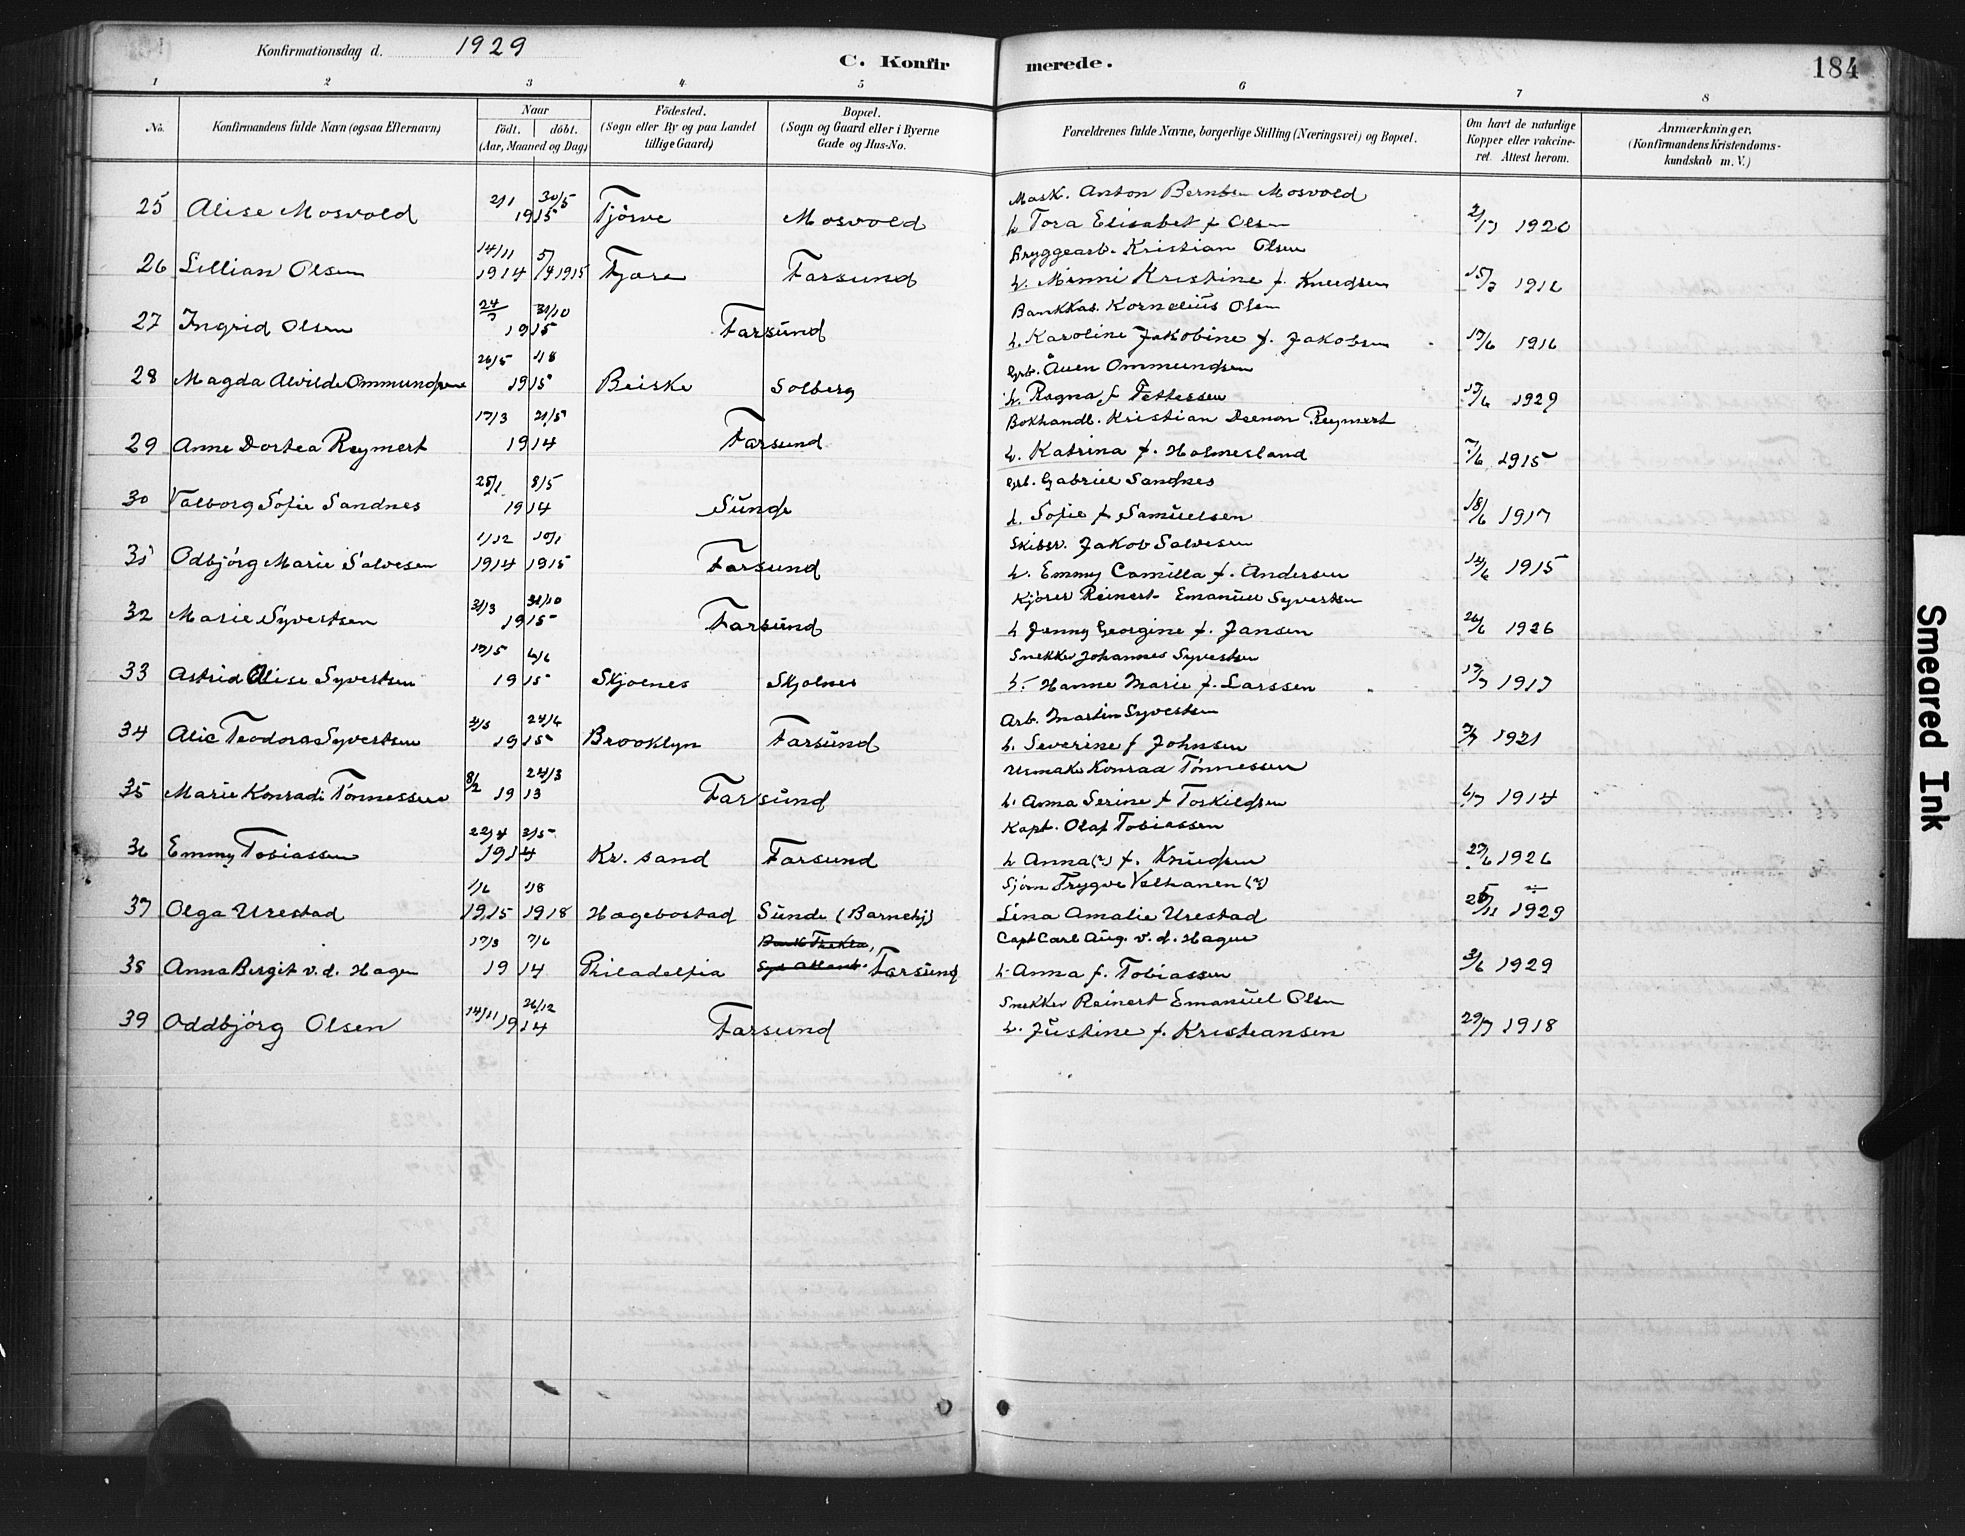 Konfirmationsdag d. 1929
C. Konfirmerede.
184
1 2 3 4 5 6 7 8
No. Konfirmandens fulde Navn (ogsaa Efternavn) Naar født. døbt. (Aar, Maaned og Dag) Fødested. (Sogn eller By og paa Landet tillige Gaard) Bopæl. (Sogn og Gaard eller i Byerne Gade og Hus-No. Forældrenes fulde Navne, borgerlige Stilling (Næringsvei) og Bopæl. Om havt de naturlige Kopper eller vakcineret. Attest herom. Anmærkninger. (Konfirmandens Kristendomskundskab m. V.)
Mask. Anton Berntsen Mosvold
25 Alise Mosvold 2/1 30/5 1915 Tjörve Mosvold h Tora Elisabet f Olsen 1920
Bryggearb. Kristian Olsen
26 Lillian Olsen 14/11 1914 5/4 1915 Farsund h. Minni Kristine f. Knudsen 1916
Bankkas. Kornelius Olsen
27 Ingrid Olsen 24/7 31/10 1915 Farsund h. Karoline Jakobine f. Jakobsen 1916
Grb. Åven Ommundsen
28 Magda Alvilde Ommundsen 26/5 1/8 1915 Beiske Solberg h. Ragna f Tellessen 1929
Bokhandl. Kristian Reymert
29 Anne Dortea Reymert 17/3 21/5 1914 Farsund h. Katrina f. Holmesland 7/6 1915
Grb. Gabriel Sandnes
30 Valborg Sofie Sandnes 8/5 1914 Sunde h. Sofie f. Samuelsen 18/6 1917
Skibsr. Jakob Salvesen
31 Odbjörg Marie Salvesen 1/12 1914 10/1 1915 Farsund h. Emmy Camilla f. Andersen 14/6 1915
Kjörer Reinert Emanuel Syvertsen
32 Marie Syvertsen 31/3 31/10 1915 Farsund h Jenny Georgine f. Jansen 26/6 1926
Snekker Johannes Syvertsen
33 Astrid Alise Syvertsen 17/5 6/6 1915 Skjolnes Skjolnes h. Hanne Marie f. Larssen 1917
Arb. Martin Syvertsen
34 Alic Teodora Syvertsen 24/6 1915 Brooklyn Farsund h. Severine f Johnsen 1921
Urmaker Konrad Tönnessen
35 Marie Konradi Tönnessen 8/2 24/3 1913 Farsund h. Anna Serine f Torkildsen 1914
Kapt. Olaf Tobiassen
36 Emmy Tobiassen 22/4 3/5 1914 Kr. sand Farsund h Anna (?) f. Knudsen 1926
Sjöm Trygve Velhanen (?)
37 Olga Urestad 1/6 1915 1/8 1918 Hægebostad Sunde (Barnehj) Lina Amalie Urestad 1929
Capt Carl Aug. v. d. Hagen
38 Anna Bergit v. d. Hagen 17/3 7/6 1914 Philadelfia Farsund h. Anna f. Tobiassen 3/6 1929
Snekker Reinert Emanuel Olsen
39 Oddbjörg Olsen 14/11 26/12 1914 Farsund h. Justine f. Kristiansen 29/7 1918
Smeared Ink